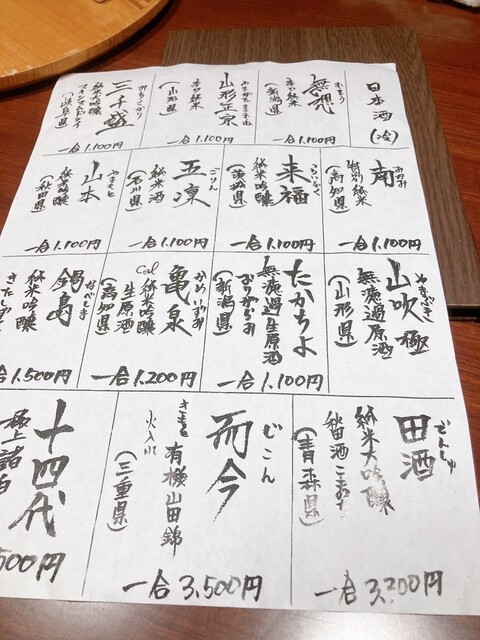 日本酒
(冷)
むそう
無想
辛口純米
(新潟県)
一合 1.100円
やまがたまさむね
山形正宗
辛口純米
(山形県)
一合 1.100円
みちさかり
三千盛
純米大吟醸
(岐阜県)
一合 1.100円
みなみ
南
特別純米
(高知県)
一合 1.100円
らいふく
来福
純米吟醸
(茨城県)
一合 1.100円
ごりん
五凛
純米酒
(石川県)
一合 1.100円
やまもと
山本
純米吟醸
(秋田県)
一合 1.100円
やまぶき
山吹極
無濾過原酒
(山形県)
たかちよ
無濾過生原酒
(新潟県)
一合 1.100円
かめいずみ
亀泉
Cel
純米吟醸
生原酒
(高知県)
一合 1.200円
なべしま
鍋島
純米吟醸
合 1.500円
でんしゅ
田酒
純米大吟醸
(青森県)
一合 3,200円
じこん
而今
有機山田錦
火入れ
(三重県)
一合 3,500円
十四代
極上諸白
500円